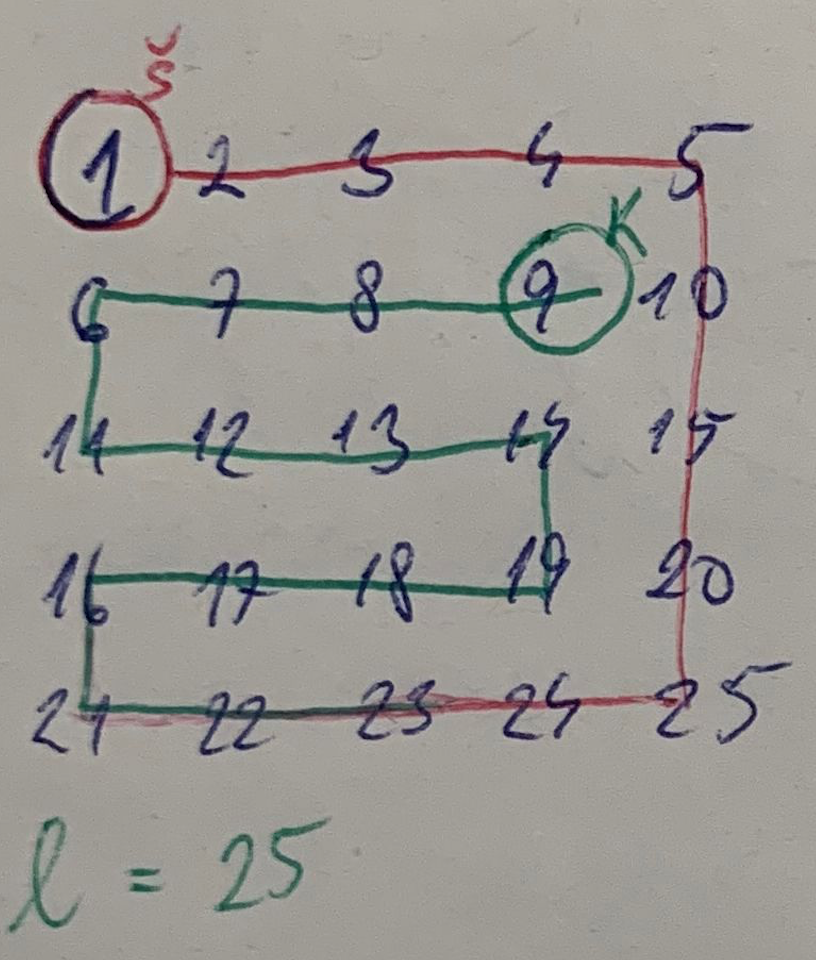 Š
1 2 3 4 5
K
6 7 8 9 10
11 12 13 14 15
16 17 18 19 20
21 22 23 24 25
l = 25